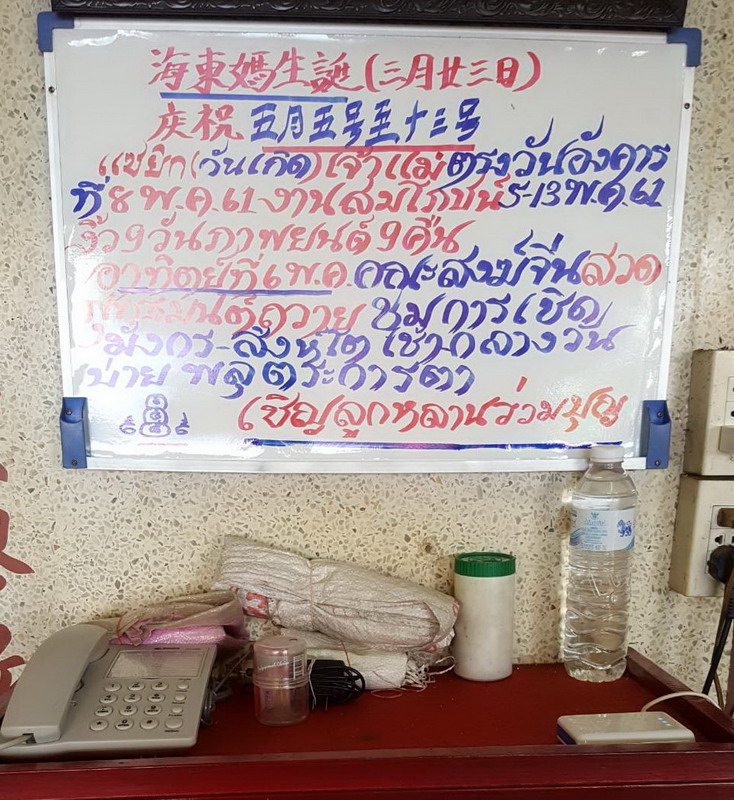 海東媽生誕(三月廿三日)
庆祝 五月五号至十三号
แซยิก(วันเกิด)เจ้าแม่ตรงวันอังคาร
ที่ 8 พ.ค.61 งานสมโภชน์ 5-13 พ.ค.61
งิ้ว 9 วันภาพยนต์ 9 คืน
อาทิตย์ที่ 6 พ.ค. คณะสงฆ์จีนสวด
พุทธมนต์ถวาย ชมการเชิด
มังกร-สิงห์โต เช้า-กลางวัน
บ่าย พลุตระการตา
เชิญลูกหลานร่วมบุญ